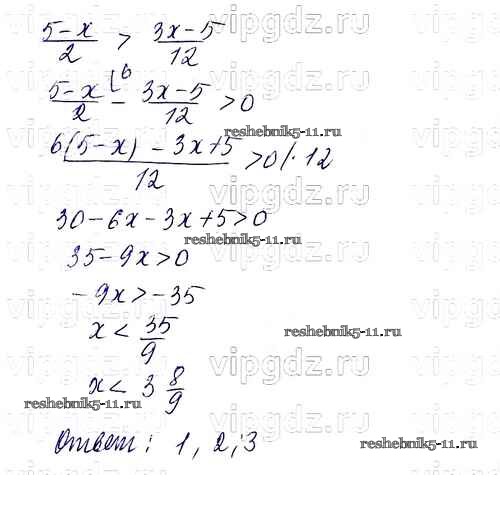 (5-x)/2 > (3x-5)/12
(5-x)/2 ⌊6 - (3x-5)/12 > 0
reshebnik5-11.ru
(6(5-x) - 3x+5)/12 > 0 /· 12
30-6x-3x+5>0
reshebnik5-11.ru
35-9x>0
-9x>-35
x < 35/9
reshebnik5-11.ru
x < 3 8/9
reshebnik5-11.ru
Ответ: 1, 2; 3
reshebnik5-11.ru
vipgdz.ru
vipgdz.ru
vipgdz.ru
vipgdz.ru
vipgdz.ru
vipgdz.ru
vipgdz.ru